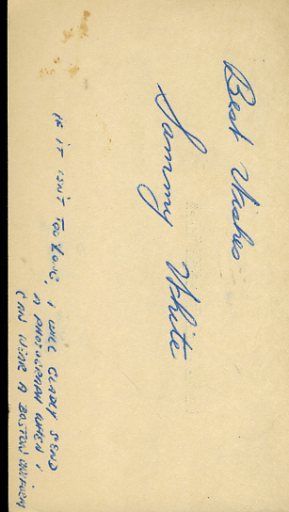 Best Wishes
Sammy White
IF IT ISN'T TOO LONG, I WILL GLADLY SEND
A PHOTOGRAPH WHEN I
CAN WEAR A BOSTON UNIFORM